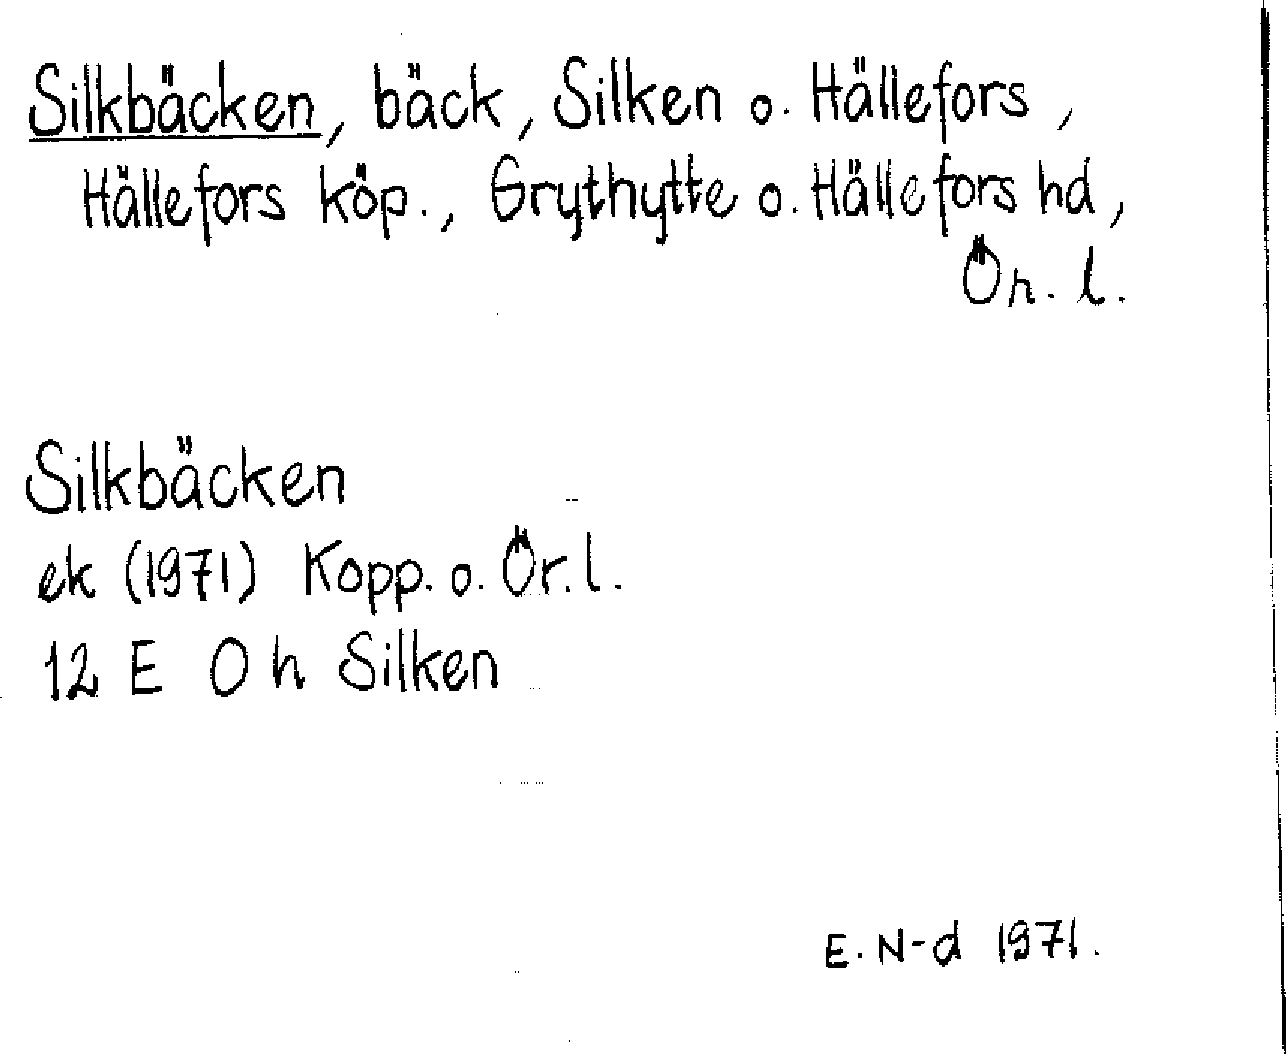 Silkbäcken, bäck, Silken o. Hällefors,
Hällefors köp., Grythytte o. Hällefors hd,
Ör. l.
Silkbäcken
ek (1971) Kopp. o. Ör. l.
12 E 0 h Silken
E. N-d 1971.